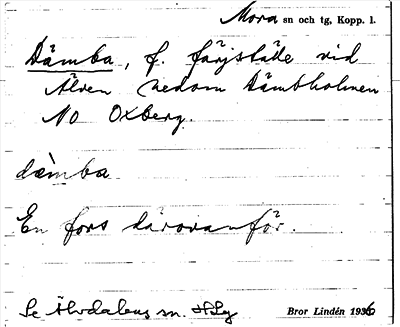 Mora sn och tg, Kopp. l.
Dämba, f. färjställe vid
Älven nedom Dämbholmen
NO Oxberg.
dämba
En fors därovanför.
Se Älvdalens sn.
Bror Lindén 1936